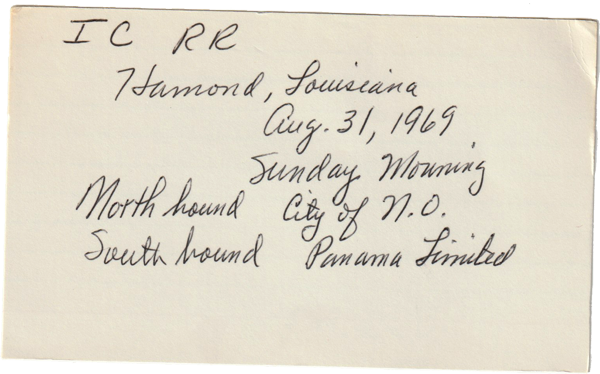 I C RR
Hamond, Louisiana
Aug. 31, 1969
Sunday Morning
North bound City of N.O.
South bound Panama Limited